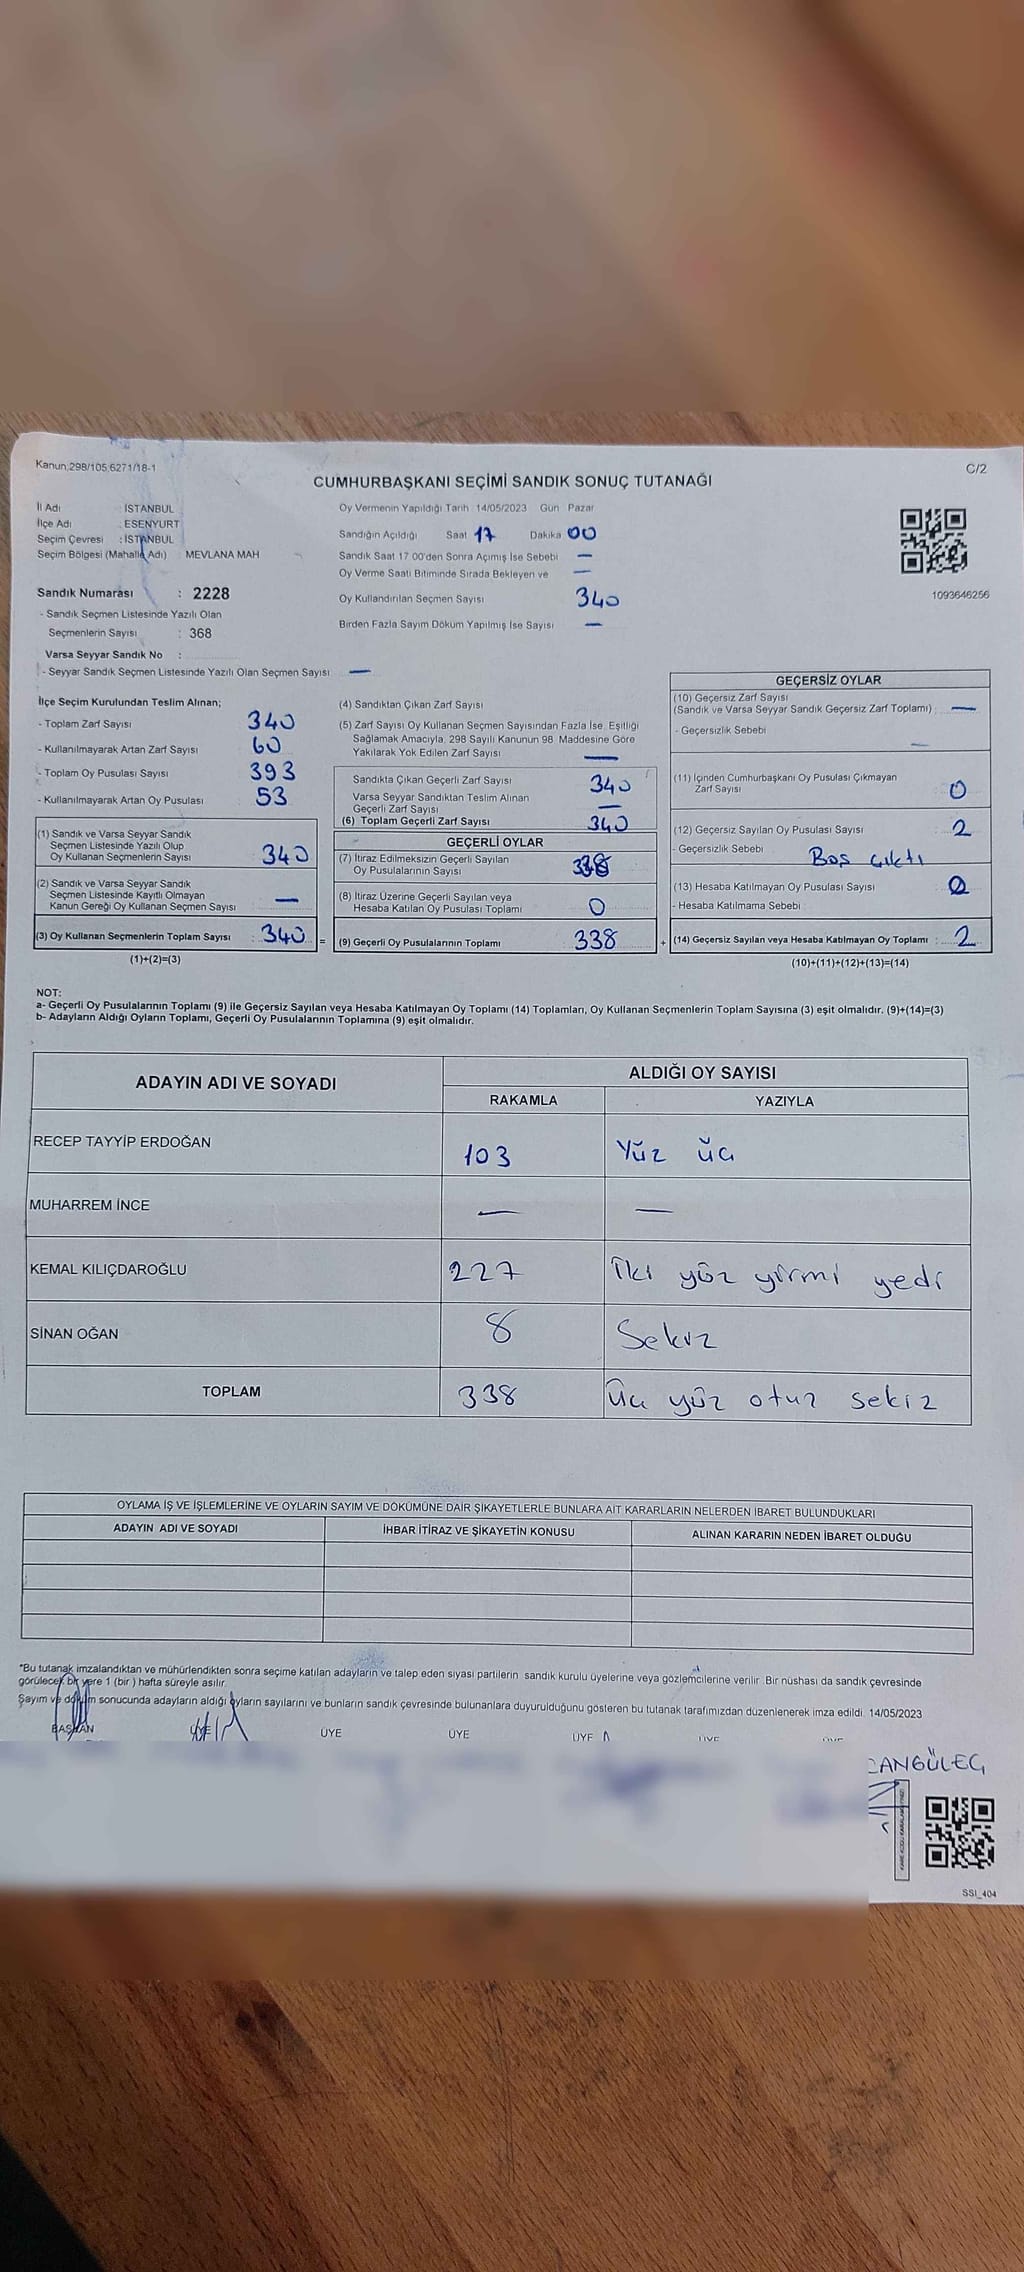 Kanun,298/105,6271/18-1
C/2
CUMHURBAŞKANI SEÇİMİ SANDIK SONUÇ TUTANAĞI
İl Adı : İSTANBUL
İlçe Adı : ESENYURT
Seçim Çevresi : İSTANBUL
Seçim Bölgesi (Mahalle Adı) : MEVLANA MAH
Sandık Numarası : 2228
- Sandık Seçmen Listesinde Yazılı Olan
Seçmenlerin Sayısı : 368
Varsa Seyyar Sandık No :
- Seyyar Sandık Seçmen Listesinde Yazılı Olan Seçmen Sayısı —
Oy Vermenin Yapıldığı Tarih : 14/05/2023 Gün Pazar
Sandığın Açıldığı Saat 17 Dakika 00
Sandık Saat 17:00'den Sonra Açımış İse Sebebi —
Oy Verme Saati Bitiminde Sırada Bekleyen ve —
Oy Kullandırılan Seçmen Sayısı 340
Birden Fazla Sayım Döküm Yapılmış İse Sayısı —
1093646256
İlçe Seçim Kurulundan Teslim Alınan;
- Toplam Zarf Sayısı 340
- Kullanılmayarak Artan Zarf Sayısı 60
- Toplam Oy Pusulası Sayısı 393
- Kullanılmayarak Artan Oy Pusulası 53
(1) Sandık ve Varsa Seyyar Sandık
Seçmen Listesinde Yazılı Olup
Oy Kullanan Seçmenlerin Sayısı 340
(2) Sandık ve Varsa Seyyar Sandık
Seçmen Listesinde Kayıtlı Olmayan
Kanun Gereği Oy Kullanan Seçmen Sayısı —
(3) Oy Kullanan Seçmenlerin Toplam Sayısı 340 =
(1)+(2)=(3)
(4) Sandıktan Çıkan Zarf Sayısı
(5) Zarf Sayısı Oy Kullanan Seçmen Sayısından Fazla İse, Eşitliği
Sağlamak Amacıyla; 298 Sayılı Kanunun 98. Maddesine Göre
Yakılarak Yok Edilen Zarf Sayısı —
Sandıkta Çıkan Geçerli Zarf Sayısı 340
Varsa Seyyar Sandıktan Teslim Alınan
Geçerli Zarf Sayısı —
(6) Toplam Geçerli Zarf Sayısı 340
GEÇERLİ OYLAR
(7) İtiraz Edilmeksizin Geçerli Sayılan
Oy Pusulalarının Sayısı 338
(8) İtiraz Üzerine Geçerli Sayılan veya
Hesaba Katılan Oy Pusulası Toplamı 0
(9) Geçerli Oy Pusulalarının Toplamı 338 +
GEÇERSİZ OYLAR
(10) Geçersiz Zarf Sayısı
(Sandık ve Varsa Seyyar Sandık Geçersiz Zarf Toplamı) : —
- Geçersizlik Sebebi —
(11) İçinden Cumhurbaşkanı Oy Pusulası Çıkmayan
Zarf Sayısı 0
(12) Geçersiz Sayılan Oy Pusulası Sayısı 2
- Geçersizlik Sebebi Boş çıktı
(13) Hesaba Katılmayan Oy Pusulası Sayısı
- Hesaba Katılmama Sebebi
(14) Geçersiz Sayılan veya Hesaba Katılmayan Oy Toplamı : 2
(10)+(11)+(12)+(13)=(14)
NOT:
a- Geçerli Oy Pusulalarının Toplamı (9) ile Geçersiz Sayılan veya Hesaba Katılmayan Oy Toplamı (14) Toplamları, Oy Kullanan Seçmenlerin Toplam Sayısına (3) eşit olmalıdır. (9)+(14)=(3)
b- Adayların Aldığı Oyların Toplamı, Geçerli Oy Pusulalarının Toplamına (9) eşit olmalıdır.
ADAYIN ADI VE SOYADI
ALDIĞI OY SAYISI
RAKAMLA YAZIYLA
RECEP TAYYİP ERDOĞAN 103 Yüz üç
MUHARREM İNCE — —
KEMAL KILIÇDAROĞLU 227 İki yüz yirmi yedi
SİNAN OĞAN 8 Sekiz
TOPLAM 338 Üç yüz otuz sekiz
OYLAMA İŞ VE İŞLEMLERİNE VE OYLARIN SAYIM VE DÖKÜMÜNE DAİR ŞİKAYETLERLE BUNLARA AİT KARARLARIN NELERDEN İBARET BULUNDUKLARI
ADAYIN ADI VE SOYADI İHBAR İTİRAZ VE ŞİKAYETİN KONUSU ALINAN KARARIN NEDEN İBARET OLDUĞU
*Bu tutanak imzalandıktan ve mühürlendikten sonra seçime katılan adayların ve talep eden siyasi partilerin sandık kurulu üyelerine veya gözlemcilerine verilir. Bir nüshası da sandık çevresinde
görülecek bir yere 1 (bir ) hafta süreyle asılır.
Sayım ve döküm sonucunda adayların aldığı oyların sayılarını ve bunların sandık çevresinde bulunanlara duyurulduğunu gösteren bu tutanak tarafımızdan düzenlenerek imza edildi. 14/05/2023
BAŞKAN ÜYE ÜYE ÜYE ÜYE ÜYE ÜYE
CANGÜLEÇ
SSI_404